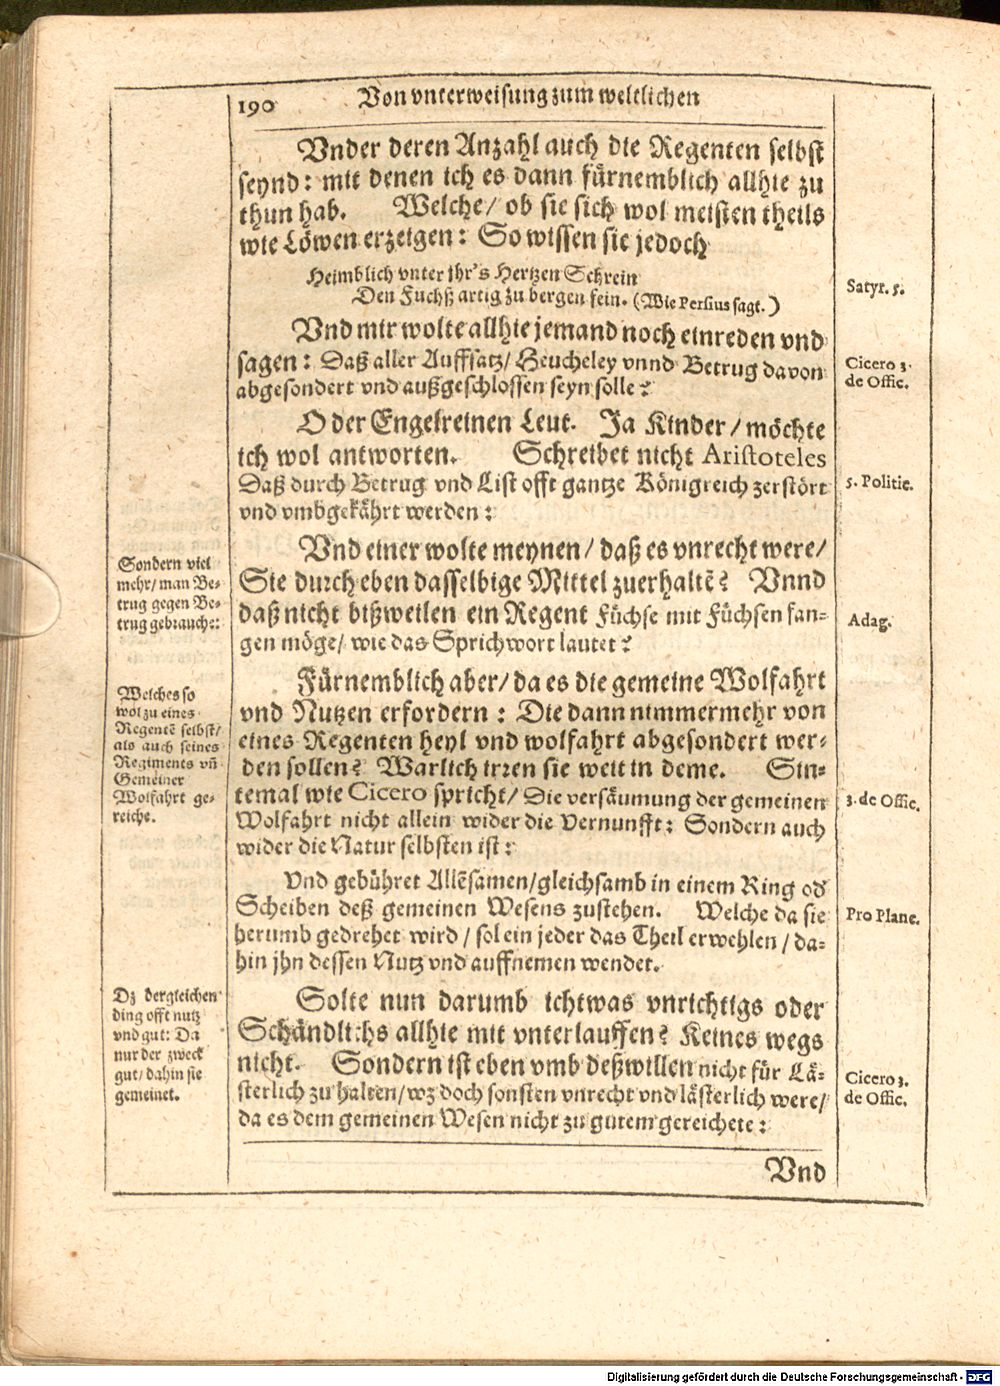 190 Von vnterweisung zum weltlichen
Vnder deren Anzahl auch die Regenten selbst
seynd: mit denen ich es dann fürnemblich allhie zu
thun hab. Welche/ ob sie sich wol meisten theils
wie Löwen erzeigen: So wissen sie jedoch
Heimblich vnter jhr's Hertzen Schrein
Den Fuchß artig zu bergen fein. (Wie Persius sagt.)
Satyr. 5.
Vnd mir wolte allhie jemand noch einreden vnd
sagen: Daß aller Auffsatz/ Heucheley vnnd Betrug davon
abgesondert vnd außgeschlossen seyn solle?
Cicero 3.
de Offic.
O der Engelreinen Leut. Ja Kinder/ möchte
ich wol antworten. Schreibet nicht Aristoteles
Daß durch Betrug vnd List offt gantze Königreich zerstört
vnd vmbgekährt werden:
5. Politic.
Vnd einer wolte meynen/ daß es vnrecht were/
Sie durch eben dasselbige Mittel zuerhaltē? Vnnd
daß nicht bißweilen ein Regent Füchse mit Füchsen fan-
gen möge/ wie das Sprichwort lautet?
Sondern viel
mehr/ man Be-
trug gegen Be-
trug gebrauche:
Adag.
Fürnemblich aber/ da es die gemeine Wolfahrt
vnd Nutzen erfordern: Die dann nimmermehr von
eines Regenten heyl vnd wolfahrt abgesondert wer-
den sollen? Warlich irren sie weit in deme. Sin-
temal wie Cicero spricht/ Die versäumung der gemeinen
Wolfahrt nicht allein wider die Vernunfft: Sondern auch
wider die Natur selbsten ist:
Welches so
wol zu eines
Regentē selbst/
als auch seines
Regiments vñ
Gemeiner
Wolfahrt ge-
reiche.
3. de Offic.
Vnd gebühret Allēsamen/ gleichsamb in einem Ring od
Scheiben deß gemeinen Wesens zustehen. Welche da sie
herumb gedrehet wird/ sol ein jeder das Theil erwehlen/ da-
hin jhn dessen Nutz vnd auffnemen wendet.
Pro Planc.
Solte nun darumb ichtwas vnrichtigs oder
Schändlichs allhie mit vnterlauffen? Keines wegs
nicht. Sondern ist eben vmb deßwillen nicht für Lä-
sterlich zu halten/ wz doch sonsten vnrecht vnd lästerlich were/
da es dem gemeinen Wesen nicht zu gutem gereichete:
Dz dergleichen
ding offt nutz
vnd gut: Da
nur der zweck
gut/ dahin sie
gemeinet.
Cicero 3.
de Offic.
Vnd
Digitalisierung gefördert durch die Deutsche Forschungsgemeinschaft - DFG